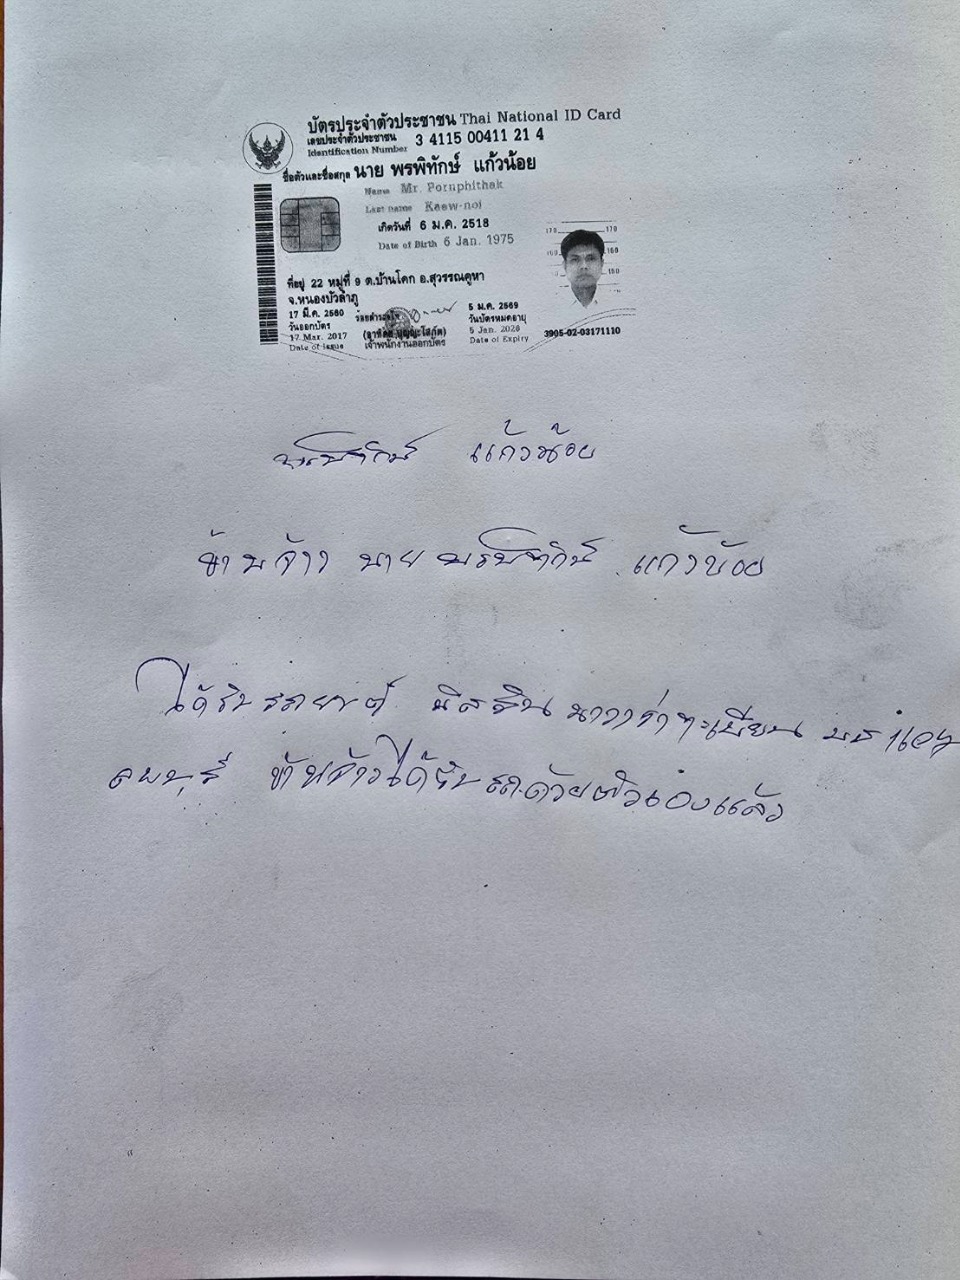 บัตรประจำตัวประชาชน Thai National ID Card
เลขประจำตัวประชาชน 3 4115 00411 21 4
Identification Number
ชื่อตัวและชื่อสกุล นาย พรพิทักษ์ แก้วน้อย
Name Mr. Pornphithak
Last name Kaew-noi
เกิดวันที่ 6 ม.ค. 2518
Date of Birth 6 Jan. 1975
ที่อยู่ 22 หมู่ที่ 9 ต.บ้านโคก อ.สุวรรณคูหา
จ.หนองบัวลำภู
17 มี.ค. 2560
วันออกบัตร
17 Mar. 2017
Date of Issue
เจ้าพนักงานออกบัตร
5 ม.ค. 2569
วันบัตรหมดอายุ
5 Jan. 2026
Date of Expiry
170 170
160 160
150
3905-02-03171110
พรพิทักษ์ แก้วน้อย
ข้าพเจ้า นาย พรพิทักษ์ แก้วน้อย
ได้รับรถยนต์ นิสสัน นาวาร่า ทะเบียน
ลพบุรี ข้าพเจ้าได้รับรถด้วยตัวเองแล้ว